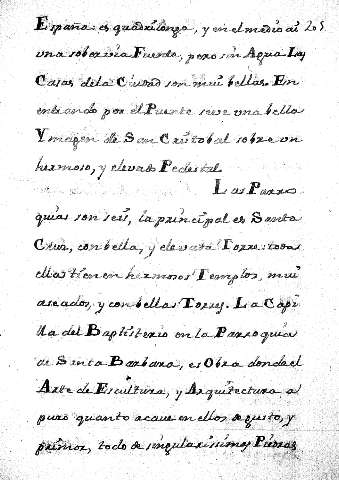 España: es quadrilonga, y en el medio ai 205
una sobervia Fuente, pero sin Agua. Las
Casas de la Ciudad son mui bellas. En
entrando por el Puente se ve una bella
Ymagen de San Cristobal sobre un
hermoso, y elevado Pedestal.
Las Parro
quias son seis, la principal es Santa
Cruz, con bella, y elevata Torre: todas
ellas tienen hermosos Templos, mui
aseados, y con bellas Torres. La Capi
lla del Baptisterio en la Parroquia
de Santa Barbara, es Obra donde el
Arte de Escultura, y Arquitectura a
puro quanto acave en ellos de gusto, y
primor, todo de singularissimas Piedras